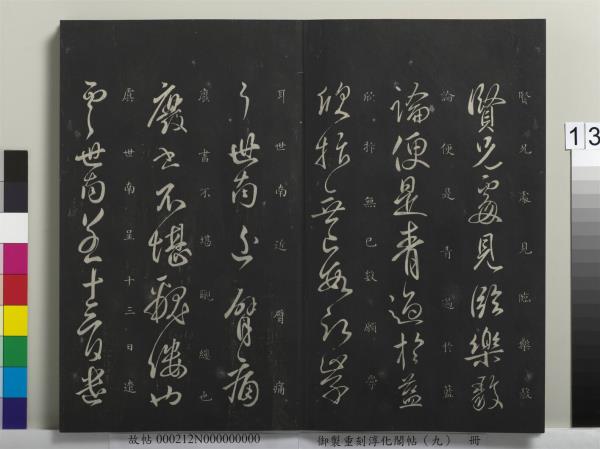 賢兄處見臨樂毅
賢兄處見臨樂毅
論便是青過於藍
論便是青過於藍
欣抃無已數願學
欣抃無已數願學
耳世南近臂痛
耳世南近臂痛
廢書不堪覼縷也
廢書不堪覼縷也
虞世南呈十三日遣
虞世南呈十三日遣
13
故帖 000212N000000000
御製重刻淳化閣帖（九） 冊